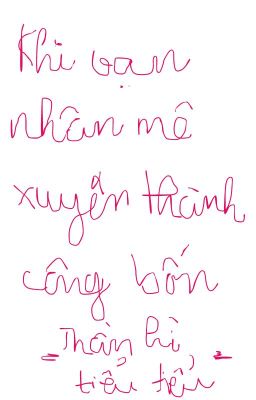 Khi bạn
nhân mê
xuyến thành
công bốn
= Thàn hì, =
tiểu tiểu